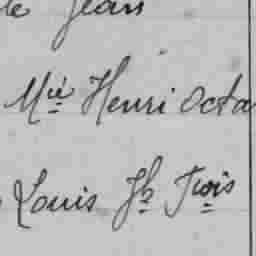 le Jean
Mie Henri Octa
Louis Jh Frois